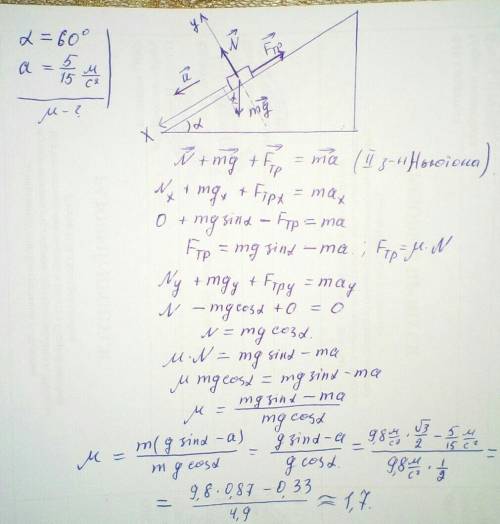 α = 60°
a = 5/15 м/с²
μ - ?
y
N
Fтр
a
α
mg
X
α
N + mg + Fтр = ma (II з-н Ньютона)
Nx + mgx + Fтрx = max
0 + mg sinα - Fтр = ma
Fтр = mg sinα - ma ; Fтр = μ·N
Ny + mgy + Fтрy = may
N - mg cosα + 0 = 0
N = mg cosα.
μ·N = mg sinα - ma
μ mg cosα = mg sinα - ma
μ = (mg sinα - ma)/(mg cosα)
μ = m(g sinα - a)/(m g cosα) = (g sinα - a)/(g cosα) = (9,8 м/с² · √3/2 - 5/15 м/с²)/(9,8 м/с² · 1/2) =
= (9,8·0,87 - 0,33)/4,9 ≈ 1,7.